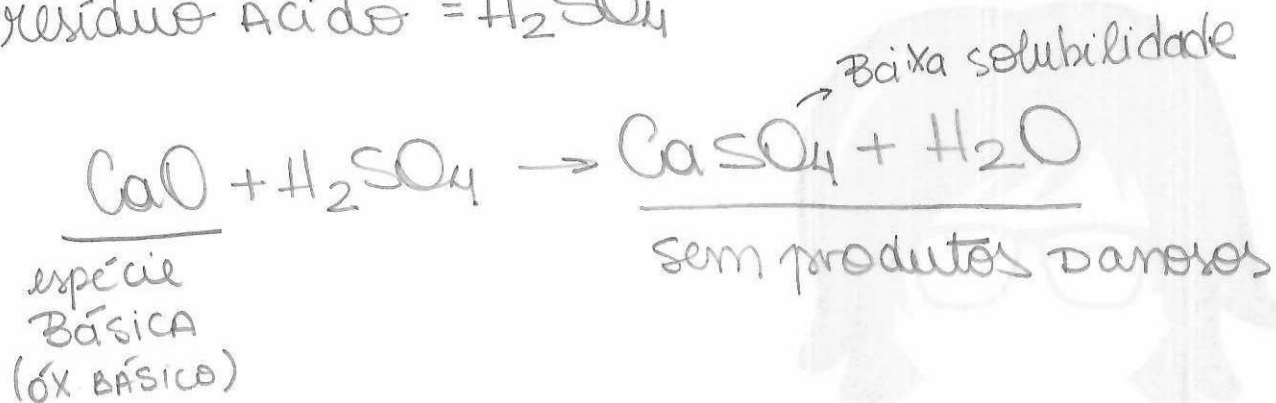 resíduo Acido = H2SO4
Baixa solubilidade
CaO + H2SO4 → CaSO4 + H2O
espécie
BÁSICA
(óx BÁSICO)
sem produtos Danosos